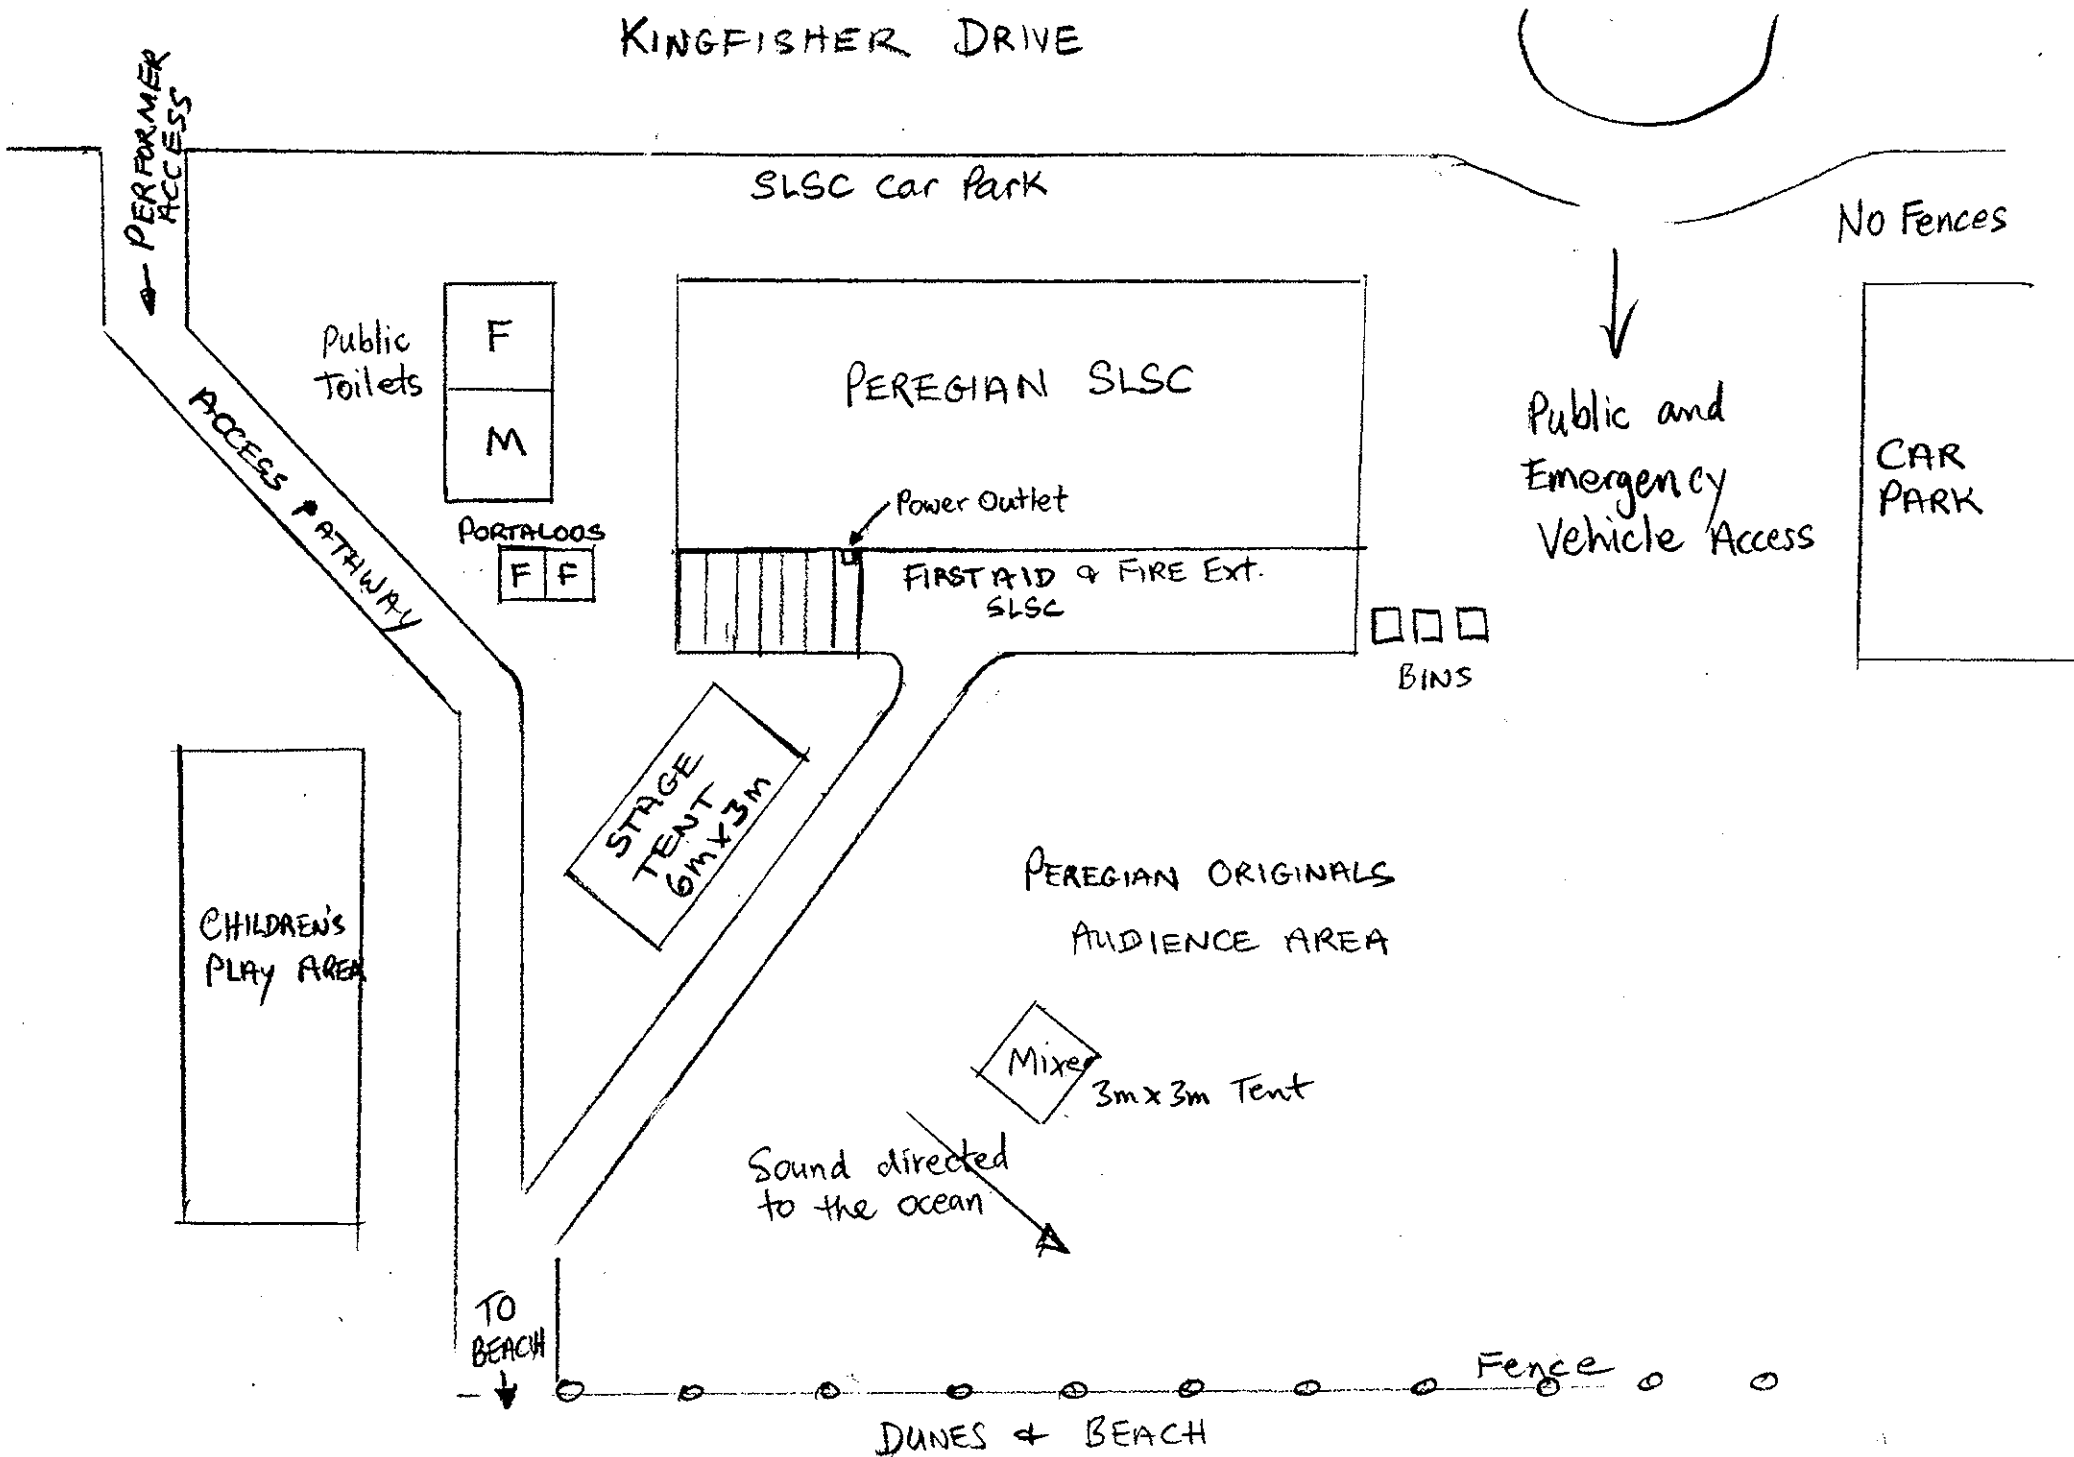 KINGFISHER DRIVE
← PERFORMER
ACCESS
SLSC Car Park
No Fences
Public
Toilets
F
M
PEREGIAN SLSC
Public and
Emergency
Vehicle Access
CAR
PARK
ACCESS PATHWAY
Power Outlet
PORTALOOS
F F
FIRST AID & FIRE Ext.
SLSC
BINS
STAGE
TENT
6m x 3m
CHILDREN'S
PLAY AREA
PEREGIAN ORIGINALS
AUDIENCE AREA
Mixer
3m x 3m Tent
Sound directed
to the ocean
TO
BEACH
Fence
DUNES & BEACH